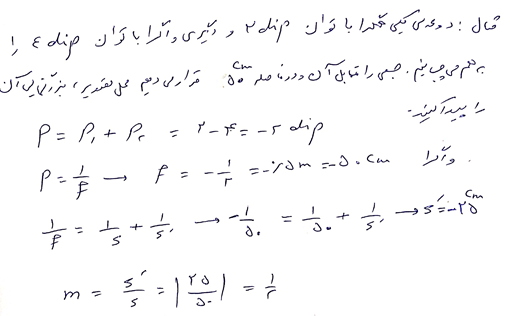 مثال : دو عدسی یکی همگرا با توان ۲ dip و دیگری واگرا با توان ۴ dip را
به هم می‌چسبانیم. جسمی را مقابل آن و در فاصله ۵۰ cm قرار می‌دهیم محل تصویر، بزرگنمایی آن
را پیدا کنید.
P = P₁ + P₂ = ۲ - ۴ = -۲ dip
واگرا P = 1/f → f = -۱/۲ = -۰/۵ m = -۵۰ cm
1/f = 1/s + 1/s' → -۱/۵۰ = ۱/۵۰ + 1/s' → s' = -۲۵ cm
m = s'/s = |۲۵/۵۰| = ۱/۲